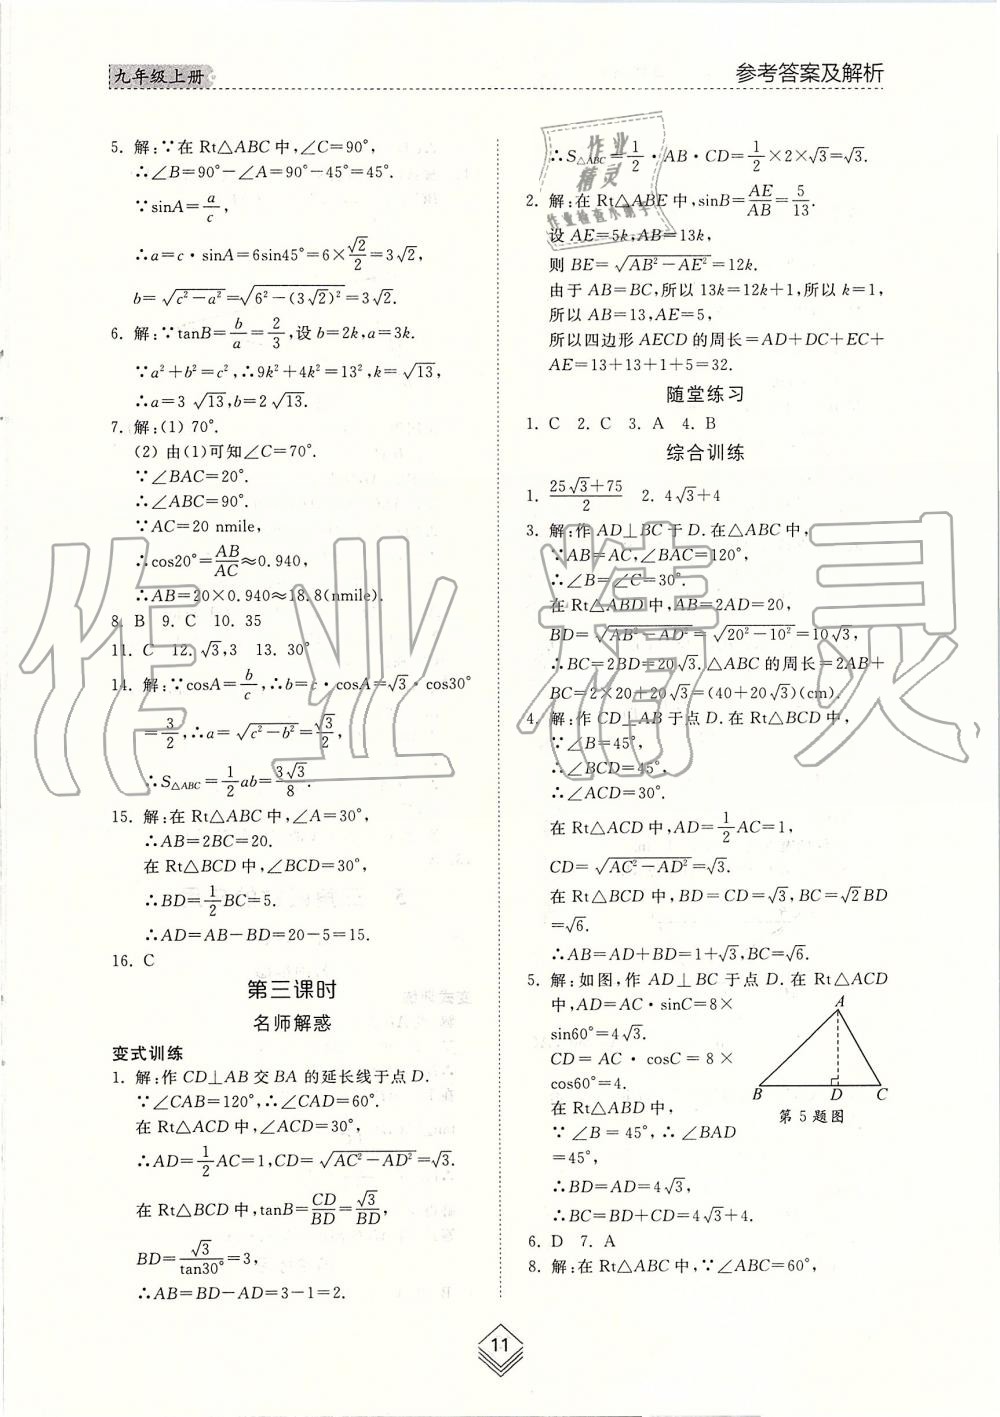 九年级上册
参考答案及解析
5. 解:∵在 Rt△ABC 中,∠C=90°,
∴∠B=90°-∠A=90°-45°=45°.
∵sinA=a/c,
∴a=c·sinA=6sin45°=6×√2/2=3√2,
b=√(c²-a²)=√(6²-(3√2)²)=3√2.
6. 解:∵tanB=b/a=2/3,设 b=2k,a=3k.
∵a²+b²=c²,∴9k²+4k²=13²,k=√13,
∴a=3√13,b=2√13.
7. 解:(1) 70°.
(2) 由(1)可知∠C=70°.
∵∠BAC=20°.
∴∠ABC=90°.
∵AC=20 nmile,
∴cos20°=AB/AC≈0.940,
∴AB=20×0.940≈18.8(nmile).
8. B 9. C 10. 35
11. C 12. √3,3 13. 30°
14. 解:∵cosA=b/c,∴b=c·cosA=√3·cos30°
=3/2,∴a=√(c²-b²)=√3/2,
∴S△ABC=1/2 ab=3√3/8.
15. 解:在 Rt△ABC 中,∠A=30°,
∴AB=2BC=20.
在 Rt△BCD 中,∠BCD=30°,
∴BD=1/2 BC=5.
∴AD=AB-BD=20-5=15.
16. C
第三课时
名师解惑
变式训练
1. 解:作 CD⊥AB 交 BA 的延长线于点 D.
∵∠CAB=120°,∴∠CAD=60°.
在 Rt△ACD 中,∠ACD=30°,
∴AD=1/2 AC=1,CD=√(AC²-AD²)=√3.
在 Rt△BCD 中,tanB=CD/BD=√3/BD,
BD=√3/tan30°=3,
∴AB=BD-AD=3-1=2.
∴S△ABC=1/2·AB·CD=1/2×2×√3=√3.
2. 解:在 Rt△ABE 中,sinB=AE/AB=5/13.
设 AE=5k,AB=13k,
则 BE=√(AB²-AE²)=12k.
由于 AB=BC,所以 13k=12k+1,所以 k=1,
所以 AB=13,AE=5,
所以四边形 AECD 的周长=AD+DC+EC+
AE=13+13+1+5=32.
随堂练习
1. C 2. C 3. A 4. B
综合训练
1. (25√3+75)/2 2. 4√3+4
3. 解:作 AD⊥BC 于 D. 在△ABC 中,
∵AB=AC,∠BAC=120°,
∴∠B=∠C=30°.
在 Rt△ABD 中,AB=2AD=20,
BD=√(AB²-AD²)=√(20²-10²)=10√3,
∴BC=2BD=20√3.△ABC 的周长=2AB+
BC=2×20+20√3=(40+20√3)(cm).
4. 解:作 CD⊥AB 于点 D. 在 Rt△BCD 中,
∵∠B=45°,
∴∠BCD=45°.
∴∠ACD=30°.
在 Rt△ACD 中,AD=1/2 AC=1,
CD=√(AC²-AD²)=√3.
在 Rt△BCD 中,BD=CD=√3,BC=√2BD
=√6.
∴AB=AD+BD=1+√3,BC=√6.
5. 解:如图,作 AD⊥BC 于点 D. 在 Rt△ACD
中,AD=AC·sinC=8×
sin60°=4√3.
CD=AC·cosC=8×
cos60°=4.
在 Rt△ABD 中,
∵∠B=45°,∴∠BAD
=45°,
∴BD=AD=4√3,
∴BC=BD+CD=4√3+4.
A
B D C
第 5 题图
6. D 7. A
8. 解:在 Rt△ABC 中,∵∠ABC=60°,
11
作业精灵
作业
精灵
作业检查小助手